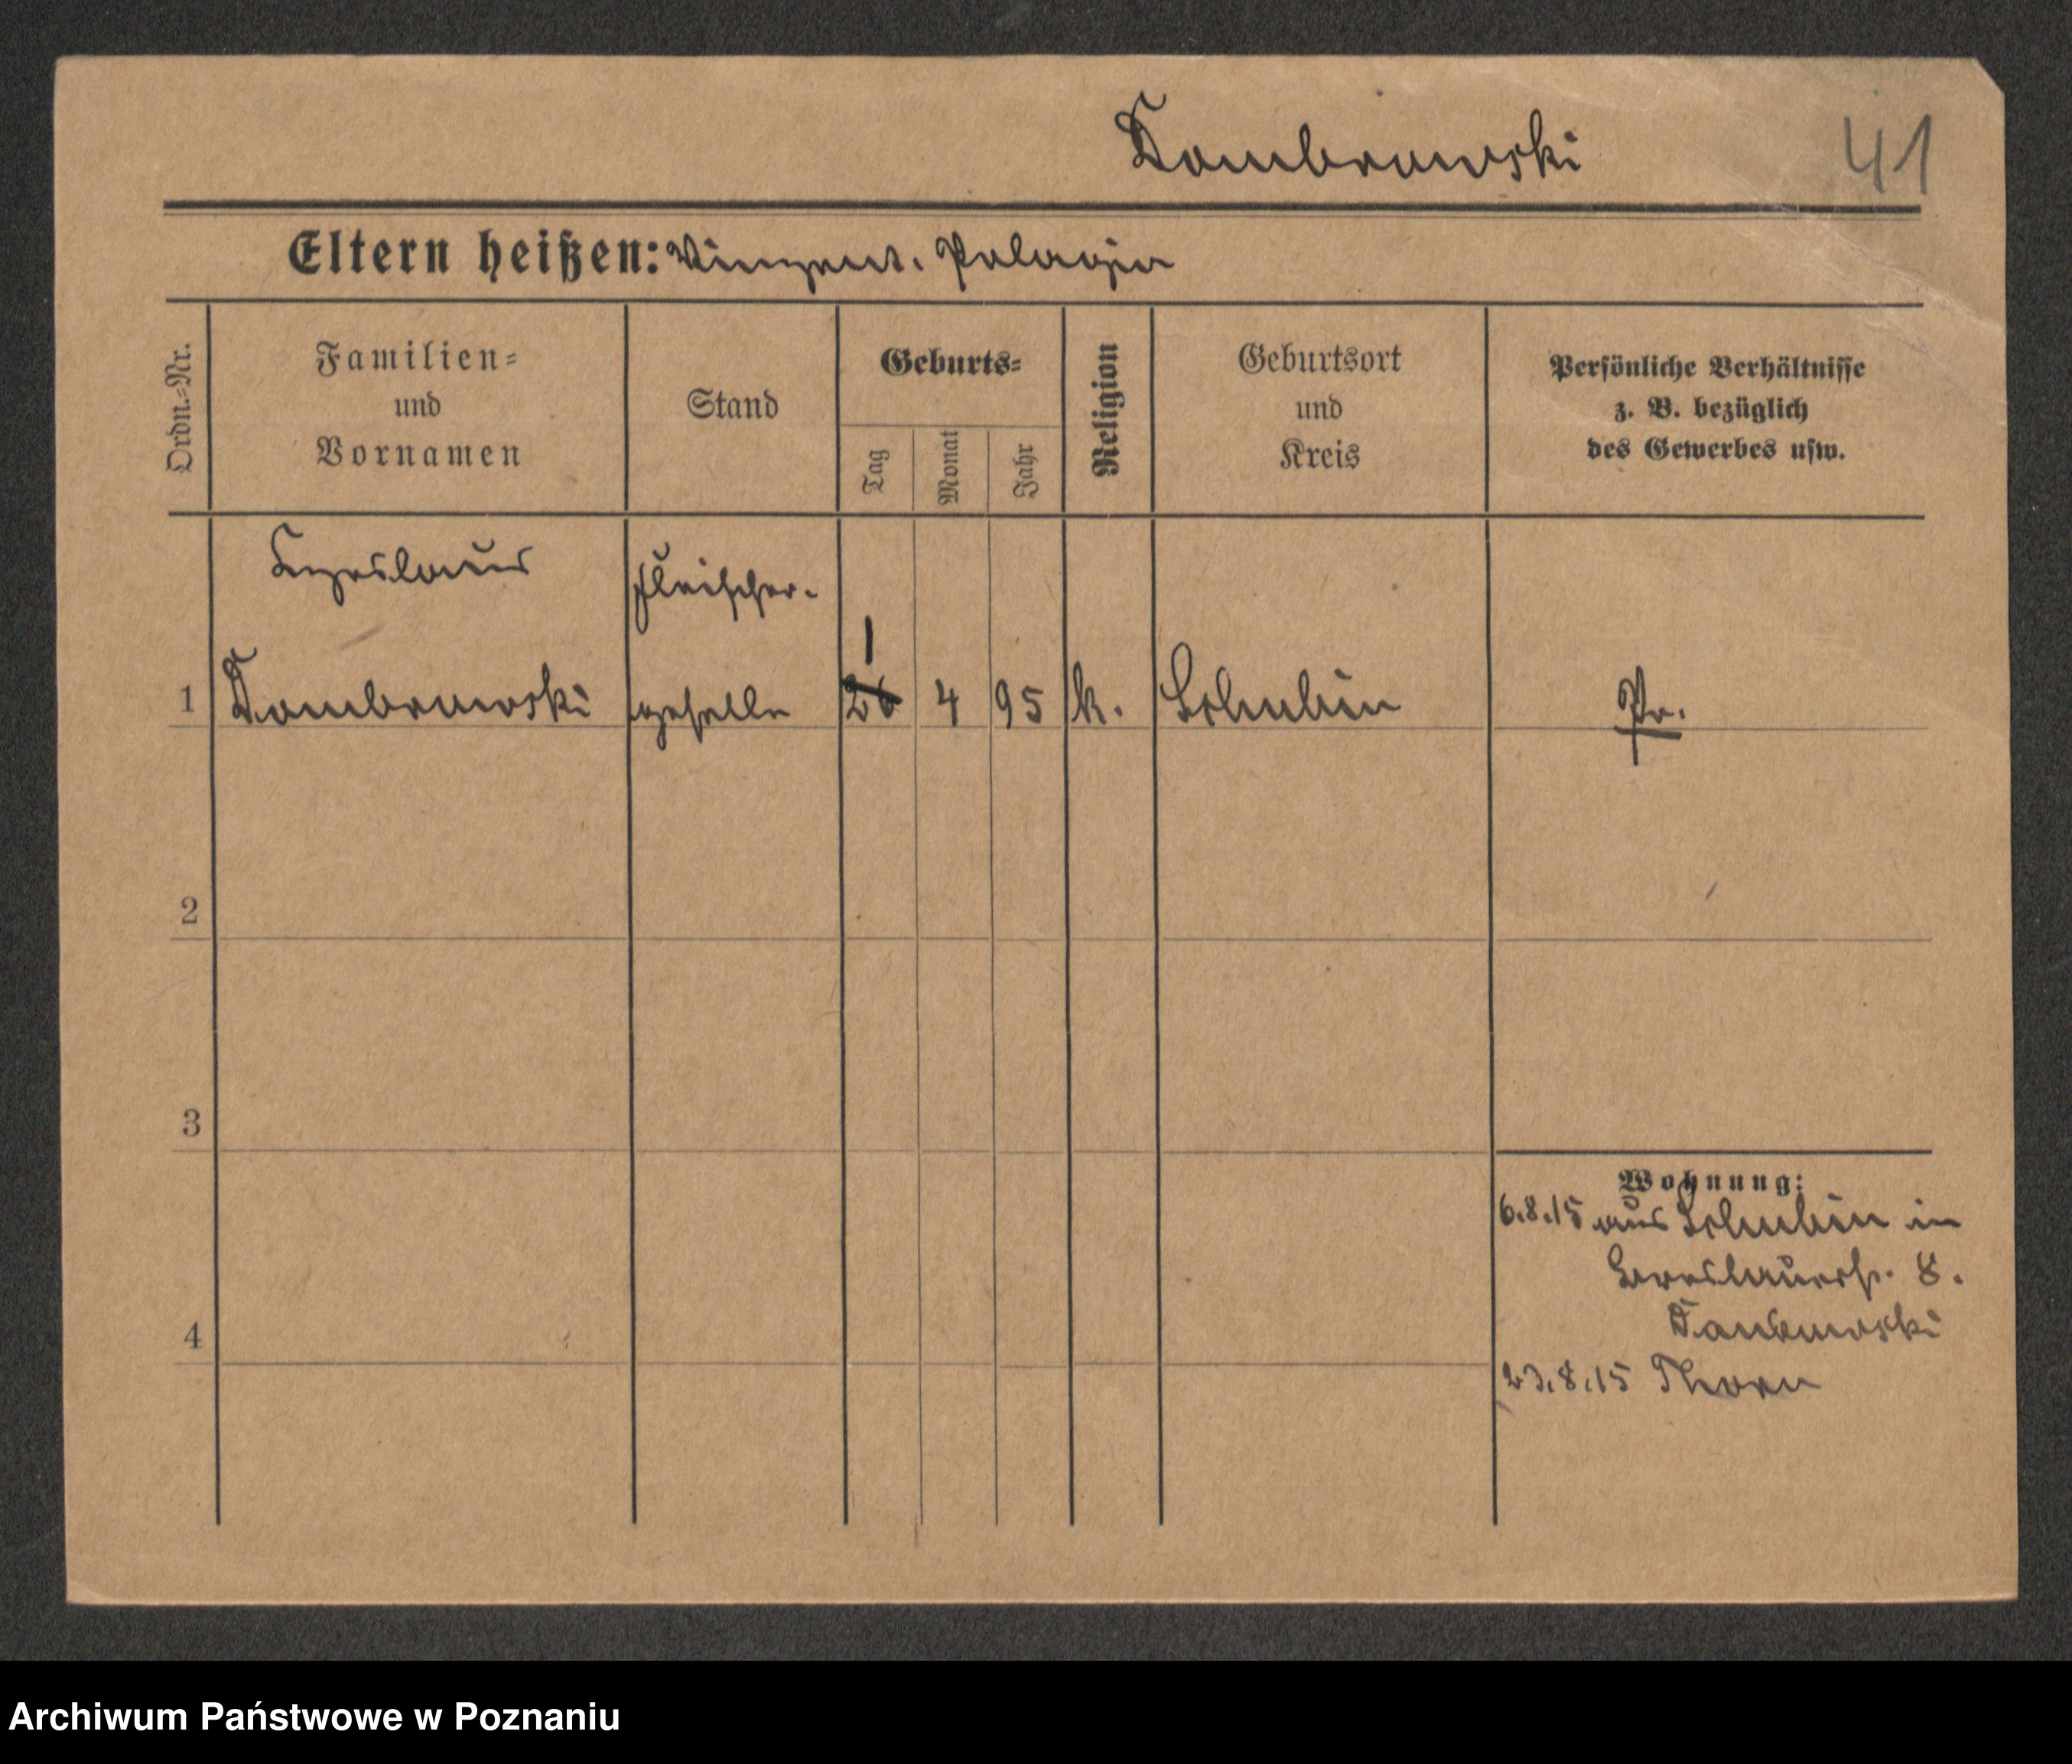 Dombrowski
41
Eltern heißen: Vinzent. Pelagia
Ordn.-Nr.
Familien-
und
Vornamen
Stand
Geburts-
Tag
Monat
Jahr
Religion
Geburtsort
und
Kreis
Persönliche Verhältnisse
z. B. bezüglich
des Gewerbes usw.
Czeslaus
Fleischer-
1
1 Dombrowski geselle 26 4 95 k. Schubin Pr.
2
3
4
Wohnung:
6.8.15 aus Schubin in
Breslauerstr. 8.
23.8.15 Thorn
Archiwum Państwowe w Poznaniu